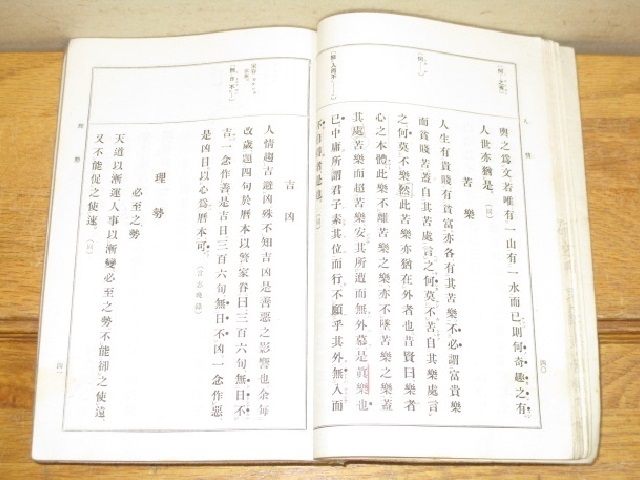 輿之爲文若唯有一山有一水而已則何奇趣之有
人世亦猶是。(同)
苦樂
人生有貴賤有貧富亦各有其苦樂不必謂富貴樂
而貧賤苦蓋自其苦處言之何莫不苦自其樂處言
之何莫不樂然此苦樂亦猶在外者也昔賢曰樂者
心之本體此樂不離苦樂之樂亦不墜苦樂之樂蓋
其處苦樂而超苦樂安其所遭而無外慕是眞樂也
已中庸所謂君子素其位而行不願乎其外無入而
不自得是也。(同)
四〇
吉凶
人情趨吉避凶殊不知吉凶是善惡之影響也余每
改歲題四句於曆本以警家眷曰三百六旬無日不
吉一念作善是吉日三百六旬無日不凶一念作惡
是凶日以心爲曆本可。(言志晚錄)
理勢
必至之勢
天道以漸運人事以漸變必至之勢不能卻之使遠
又不能促之使速。(同)
理勢
四一